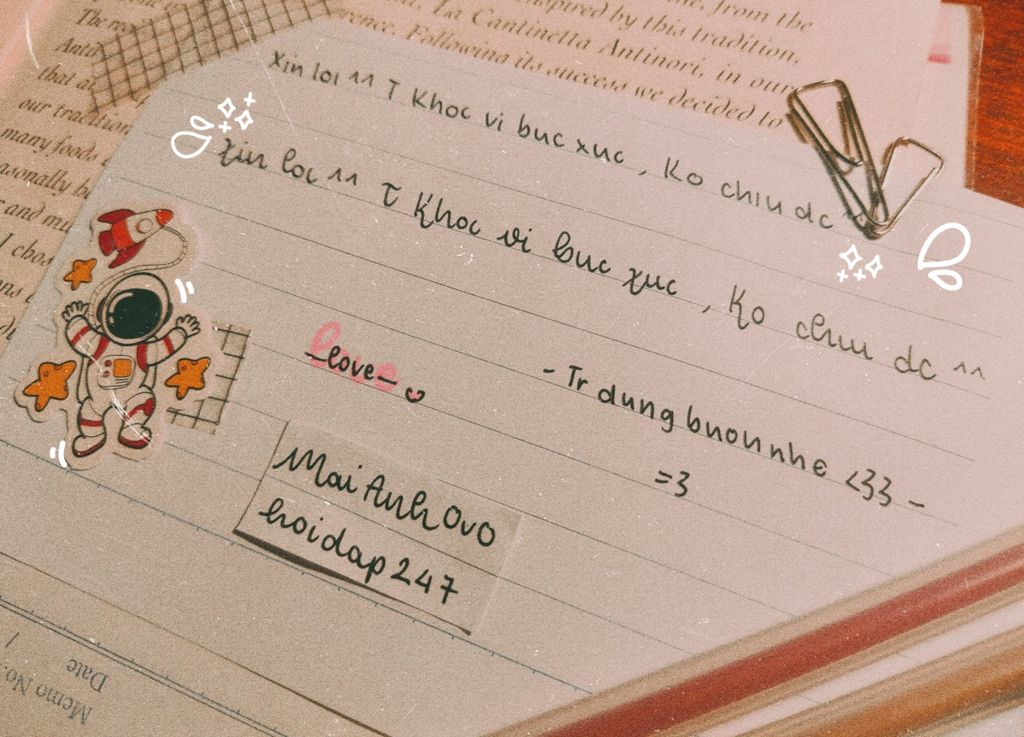 inspired by this tradition, from the
La Cantinetta Antinori, in ours
Following its success we decided to
that a
our tradition
many foods
Xin loi ^^ T Khoc vi buc xuc , Ko chiu dc ^^
Xin loi ^^ T Khoc vi buc xuc , Ko chiu dc ^^
love
-love-
- Tr dung buon nhe <33 -
=3
Mai Anh OvO
hoidap247
Memo No.
Date /